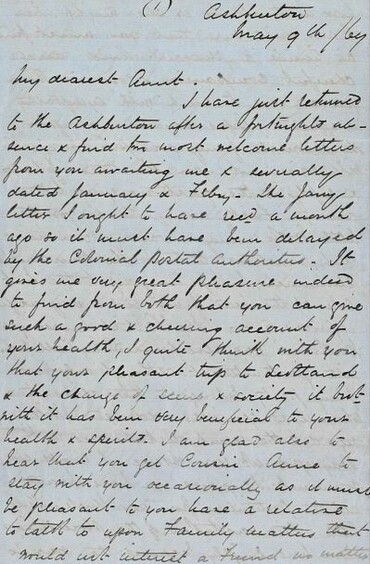 (1) Ashburton
May 9th /67
My dearest Aunt.
I have just returned
to the Ashburton after a fortnights ab-
sence & find two most welcome letters
from you awaiting me & severally
dated January & Feby - The Jany
letter I ought to have recd a month
ago so it must have been delayed
by the Colonial Postal Authorities. It
gives me very great pleasure indeed
to find from both that you can give
such a good & cheering account of
your health, I quite think with you
that your pleasant trips to Scotland
& the change of scene & society it brot
with it has been very beneficial to your
health & spirits. I am glad also to
hear that you get Cousin Anne to
stay with you occasionally as it must
be pleasant to you have a relative
to talk to upon Family matters that
would not interest a Friend no matter